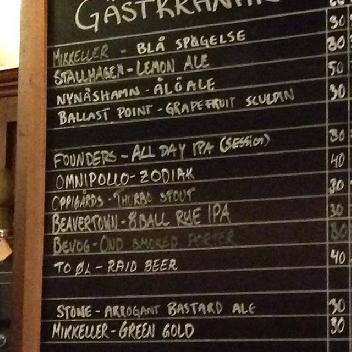 GÄSTKRANAR
MIKKELLER - BLÅ SPØGELSE 30
STALLHAGEN - LEMON ALE 30
NYNÄSHAMN - ÅLÖ ALE 50
BALLAST POINT - GRAPEFRUIT SCULPIN 30
FOUNDERS - ALL DAY IPA (SESSION) 30
OMNIPOLLO - ZODIAK 40
OPPIGÅRDS - THURBO STOUT 30
BEAVERTOWN - 8 BALL RYE IPA 30
BEVOG - OND SMOKED PORTER 30
TO ØL - RAID BEER 40
STONE - ARROGANT BASTARD ALE 30
MIKKELLER - GREEN GOLD 30